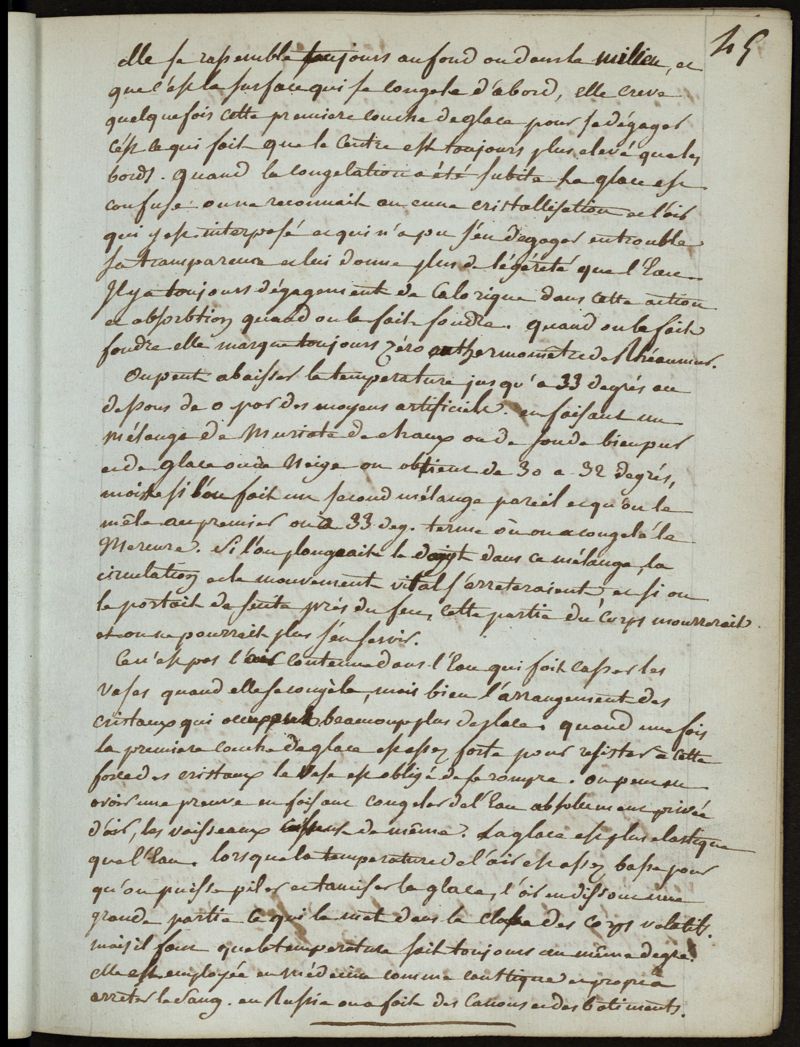 45
elle se rassemble toujours au fond ou dans le milieu, et
que c'est la surface qui se congele d'abord, elle creve
quelquefois cette premiere couche de glace pour se dégager
c'est ce qui fait que le centre est toujours plus elevé que les
bords. Quand la congelation a été subite la glace est
confuse on ne reconnait aucune cristallisation et l'air
qui y est interposé et qui n'a pu s'en dégager en trouble
sa transparence et lui donne plus de légéreté que l'Eau
Il y a toujours dégagement de Calorique dans cette action
et absorbtion quand on la fait fondre. quand on la fait
fondre elle marque toujours zéro au thermometre de Rhéaumur.
On peut abaisser la temperature jusqu'a 33 degrés au
dessous de 0 par des moyens artificiels. en faisant un
mélange de Muriate de chaux ou de soude bien pur
et de glace ou de Neige on obtient de 30 a 32 degrés,
mais si l'on fait un second mélange pareil et qu'on le
mêle au premier on a 33 deg. terme où on a congelé le
Mercure. Si l'on plongeait le doigt dans ce mélange, la
circulation et le mouvement vital s'arreteraient, et si on
le portait de suite près du feu, cette partie du Corps mourrerait
et on ne pourrait plus s'en servir.
Ce n'est pas l'air contenu dans l'Eau qui fait casser les
vases quand elle se congèle, mais bien l'arrangement des
cristaux qui occupent beaucoup plus de place. quand une fois
la premiere couche de glace est assez forte pour resister à cette
force des cristaux le Vase est obligé de se rompre. on peut en
avoir une preuve en faisant congeler de l'Eau absolument privée
d'air, les vaisseaux cassent de même. La glace est plus elastique
que l'Eau. lorsque la temperature de l'air est assez basse pour
qu'on puisse piler et tamiser la glace, l'air en dissout une
grande partie ce qui la met dans la classe des corps volatils.
mais il faut que la temperature soit toujours au même degré.
elle est employée en médecine comme caustique et propre a
arrêter le sang. en Russie on a fait des Canons et des batiments.